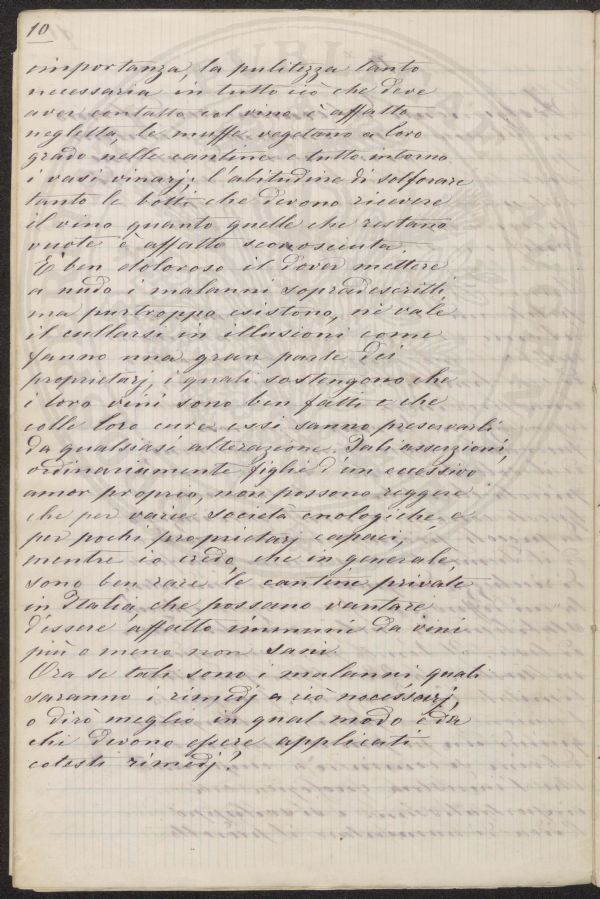 10
importanza, la pulitezza tanto
necessaria in tutto ciò che deve
aver contatto col vino è affatto
negletta, le muffe vegetano a loro
grado nelle cantine e tutto intorno
i vasi vinarj; l'abitudine di solforare
tanto le botti che devono ricevere
il vino quanto quelle che restano
vuote è affatto sconosciuta.
E' ben doloroso il dover mettere
a nudo i malanni sopradescritti,
ma purtroppo esistono, nè vale
il cullarsi in illusioni come
fanno una gran parte dei
proprietarj, i quali sostengono che
i loro vini sono ben fatti e che
colle loro cure essi sanno preservarli
da qualsiasi alterazione. Tali asserzioni,
ordinariamente figlie d'un eccessivo
amor proprio, non possono reggere
che per varie società enologiche e
per pochi proprietarj capaci,
mentre io credo, che in generale,
sono ben rare le cantine private
in Italia, che possano vantare
d'essere affatto immuni da vini
più o meno non sani.
Ora se tali sono i malanni, quali
saranno i rimedj a ciò necessarj,
o dirò meglio in qual modo e da
chi devono essere applicati
cotesti rimedj?